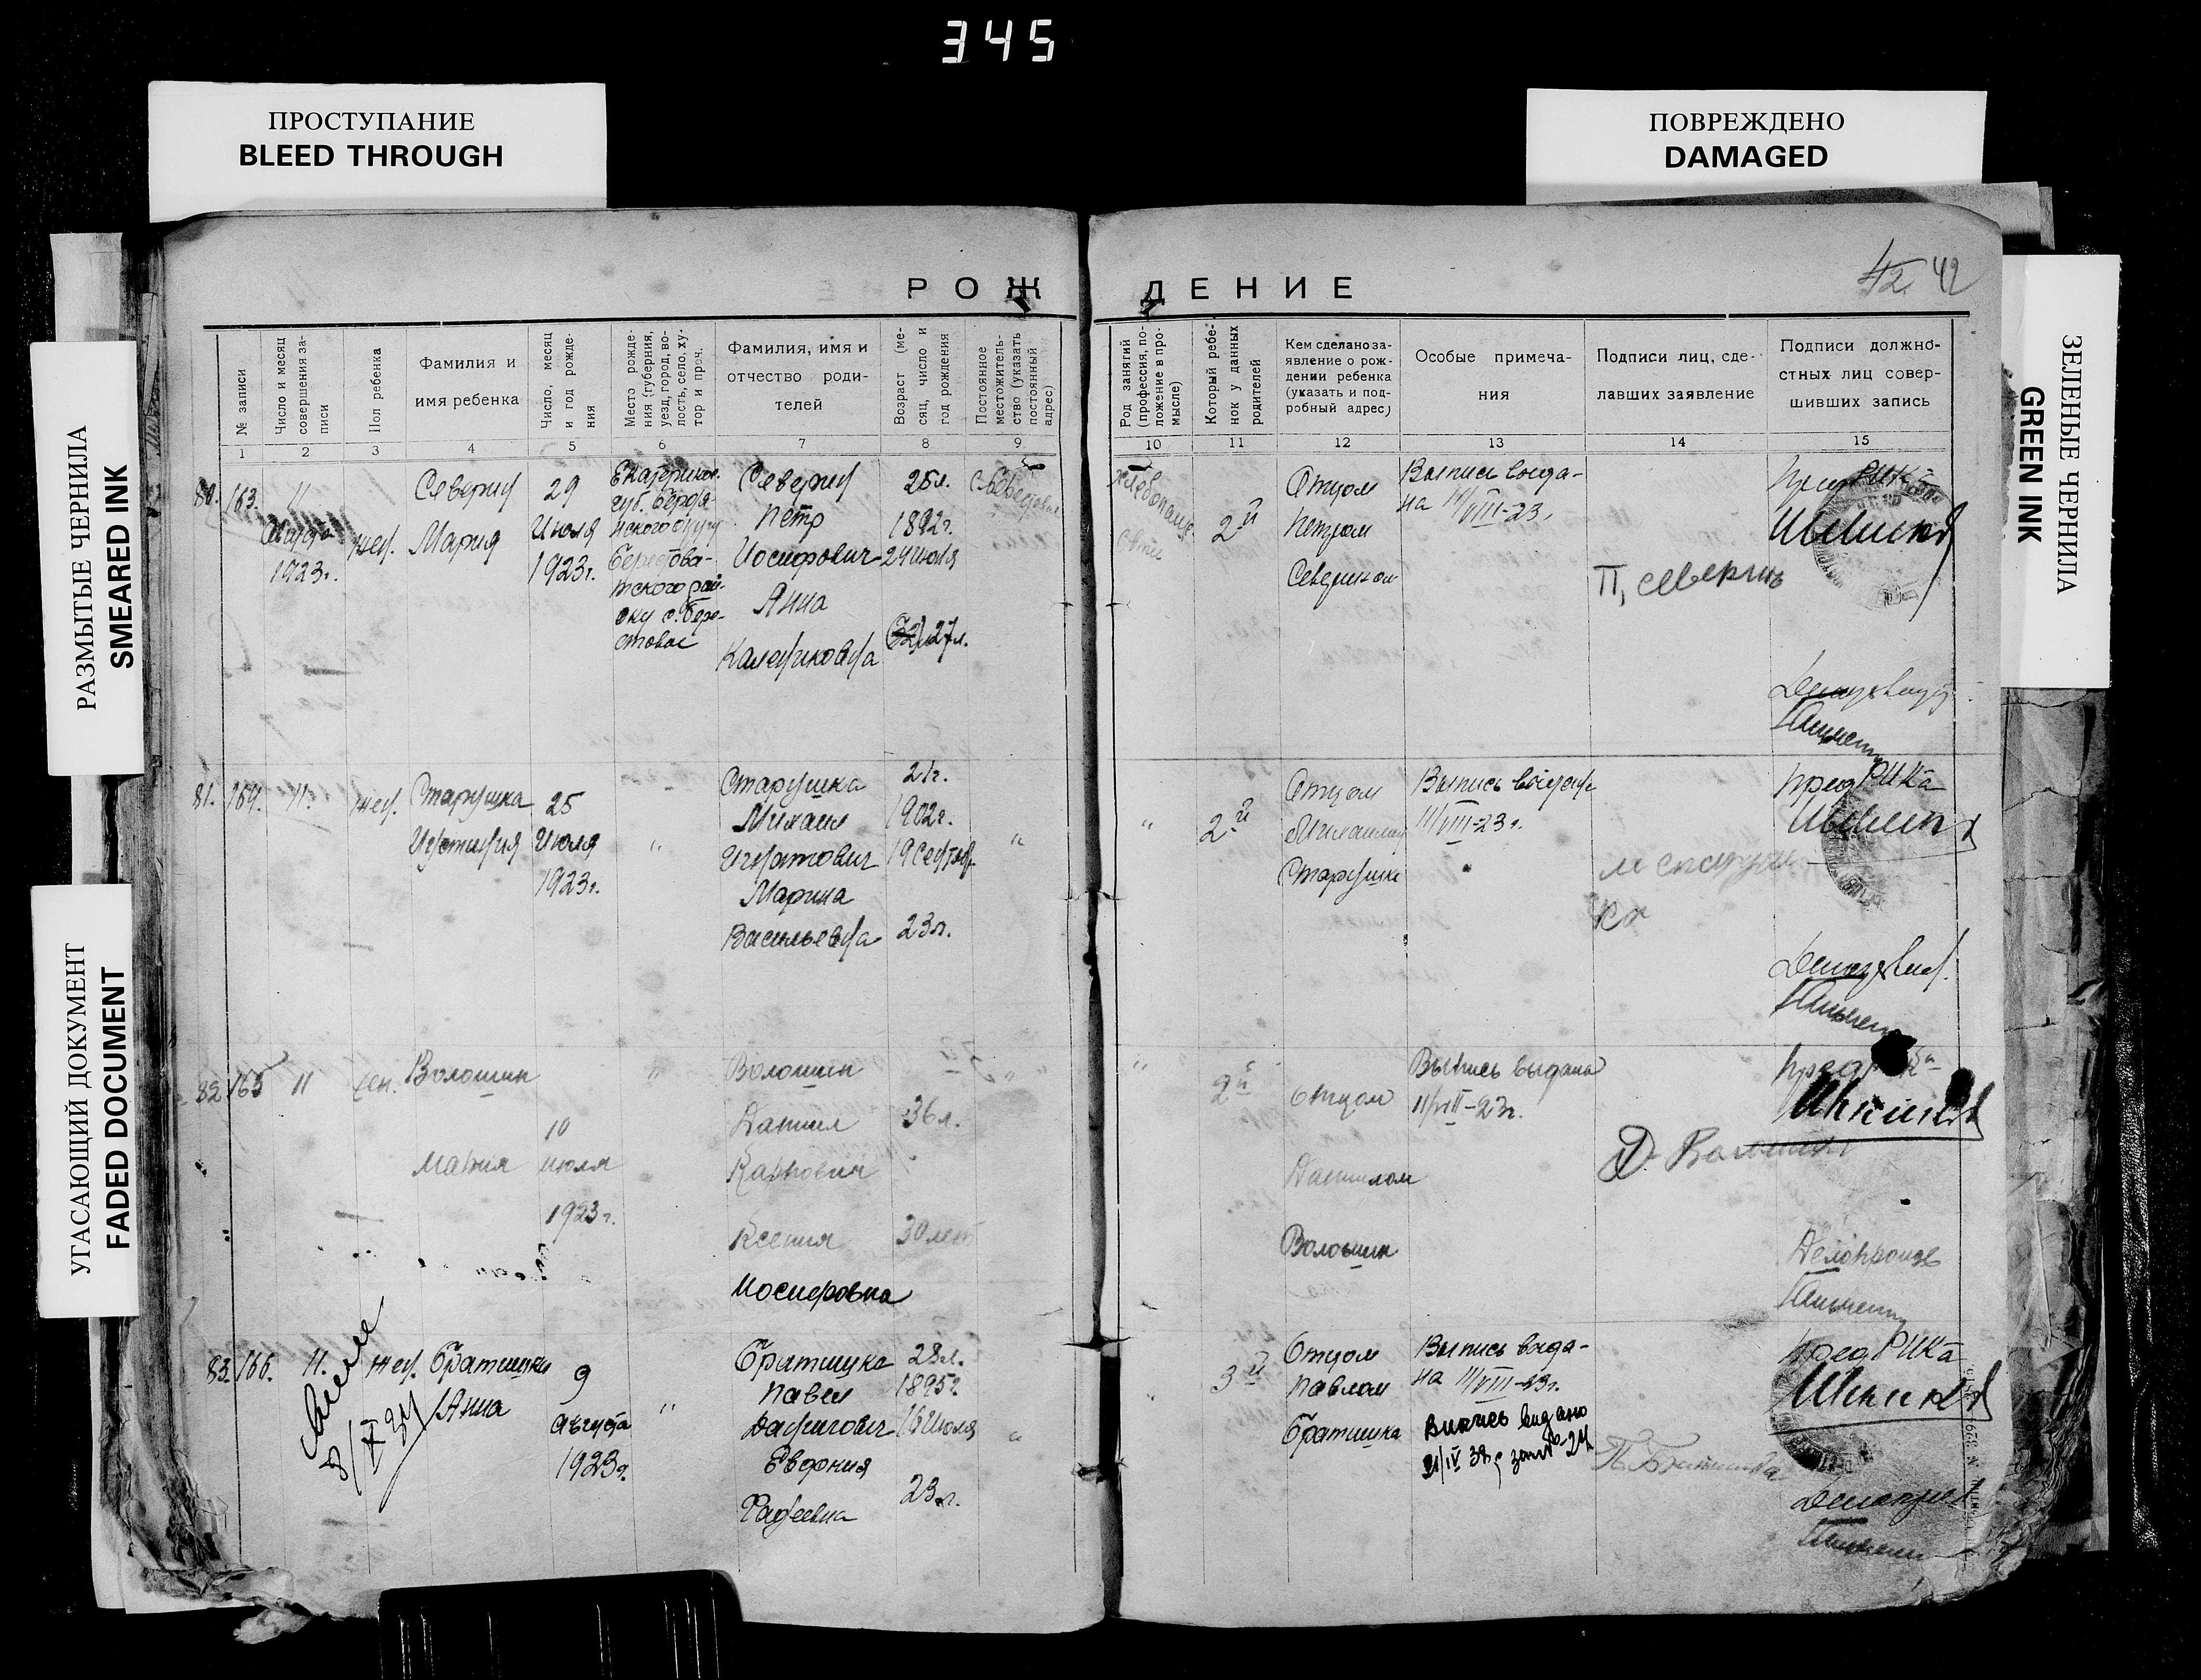 345
ПРОСТУПАНИЕ
BLEED THROUGH
ПОВРЕЖДЕНО
DAMAGED
РАЗМЫТЫЕ ЧЕРНИЛА
SMEARED INK
УГАСАЮЩИЙ ДОКУМЕНТ
FADED DOCUMENT
ЗЕЛЕНЫЕ ЧЕРНИЛА
GREEN INK
РОЖДЕНИЕ
42 42
№ записи
Число и месяц
совершения за-
писи
Пол ребенка
Фамилия и
имя ребенка
Число, месяц
и год рожде-
ния
Место рожде-
ния (губерния,
уезд, город, во-
лость, село, ху-
тор и проч.
Фамилия, имя и
отчество роди-
телей
Возраст (ме-
сяц, число и
год рождения
Постоянное
местожитель-
ство (указать
постоянный
адрес)
Род занятий
(профессия, по-
ложение в про-
мысле)
Который ребе-
нок у данных
родителей
Кем сделано за-
явление о рож-
дении ребенка
(указать и под-
робный адрес)
Особые примеча-
ния
Подписи лиц, сде-
лавших заявление
Подписи должно-
стных лиц совер-
шивших запись
1 2 3 4 5 6 7 8 9 10 11 12 13 14 15
80. 163.
11
Августа
1923г.
жен.
Северин
Мария
29
Июля
1923г.
Екатеринос.
губ. Бердя-
нского округу
Берестова-
тского рай-
ону с. Бере-
стовое
Северин
Петр
Иосифович
Анна
Калениковна
25л.
1892г.
24 июня
27л.
2й
Отцом
Петром
Северином
Выпись выда-
на 11/VIII-23.
П, северинъ
Пред РИКа
81. 164.
11.
жен.
Старушка
Июля
25
1923г.
"
Старушка
Михаил
Игнатович
Марина
Васильевна
21г.
1902г.
19 Сентяб.
23л.
"
"
2й
Отцом
Михаилом
Старушка
Выпись выдана
11/VIII-23г.
Пред РИКа
82 165
11
жен.
Волошин
Мария
10
июля
1923г.
"
Волошин
Даниил
Карпович
Ксения
Иосифовна
36л.
30 лет
"
"
2й
Отцом
Даниилом
Волошин
Выпись выдана
11/VIII-23г.
Д. Волошин
Делопроизв
83. 166.
11.
жен.
Братишка
Анна
9
Августа
1923г.
"
Братишка
Павел
Данилович
Евфония
Фадеевна
28л.
1895г.
16 Июля
23г.
"
3й
Отцом
Павлом
Братишка
Выпись выда-
на 11/VIII-23г.
Выпись видано
21/IV 38
Пред РИКа